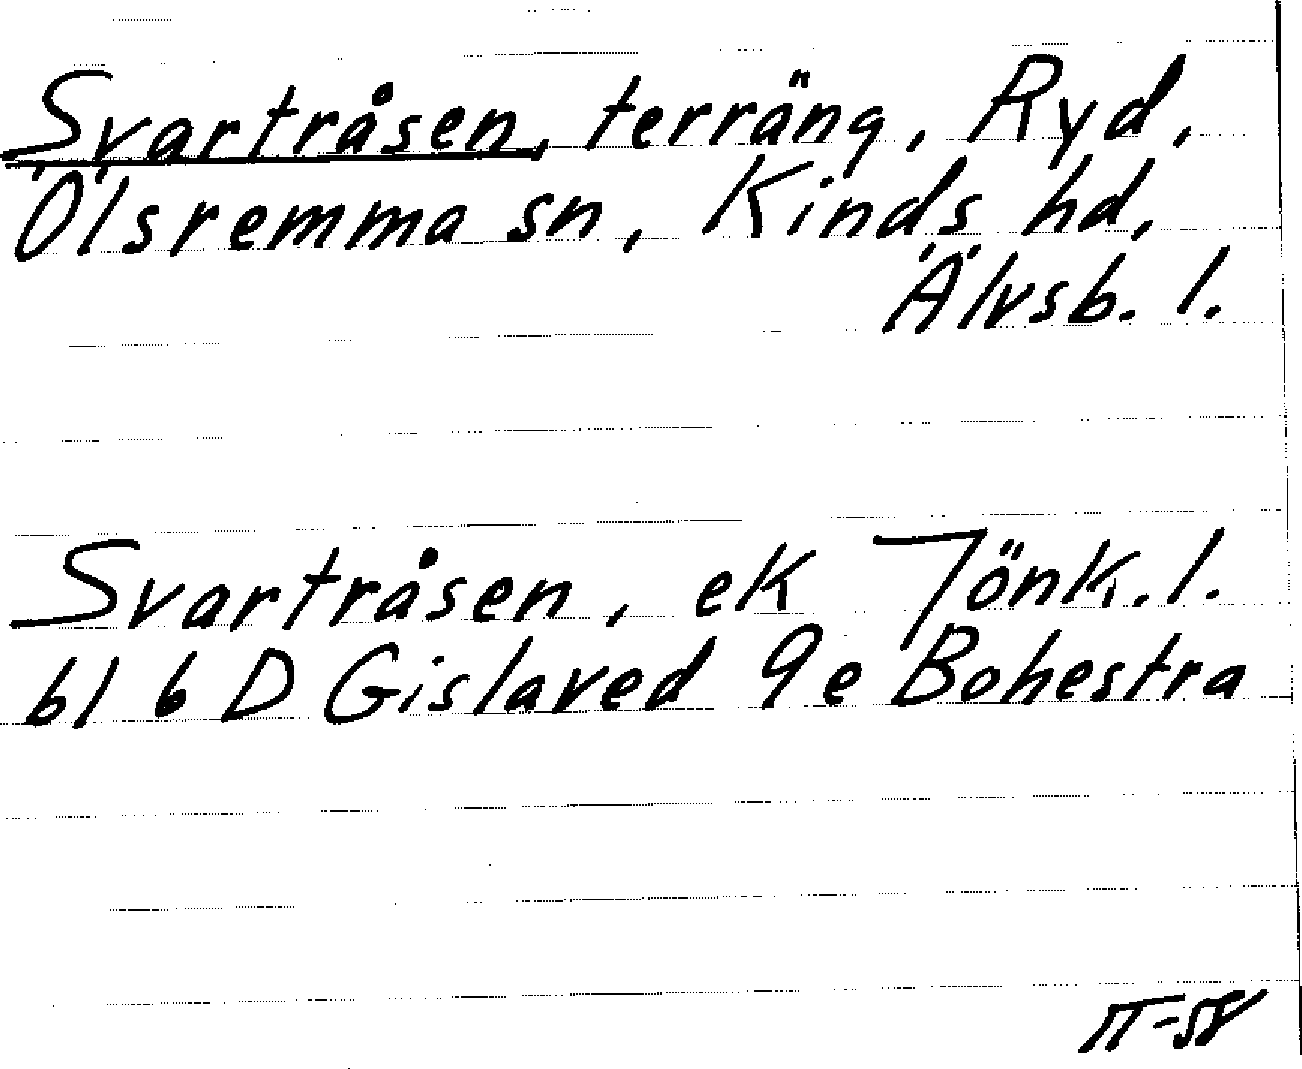 Svartråsen, terräng, Ryd,
Ölsremma sn, Kinds hd,
Älvsb. l.
Svartråsen, ek Jönk. l.
bl 6 D Gislaved 9e Bohestra